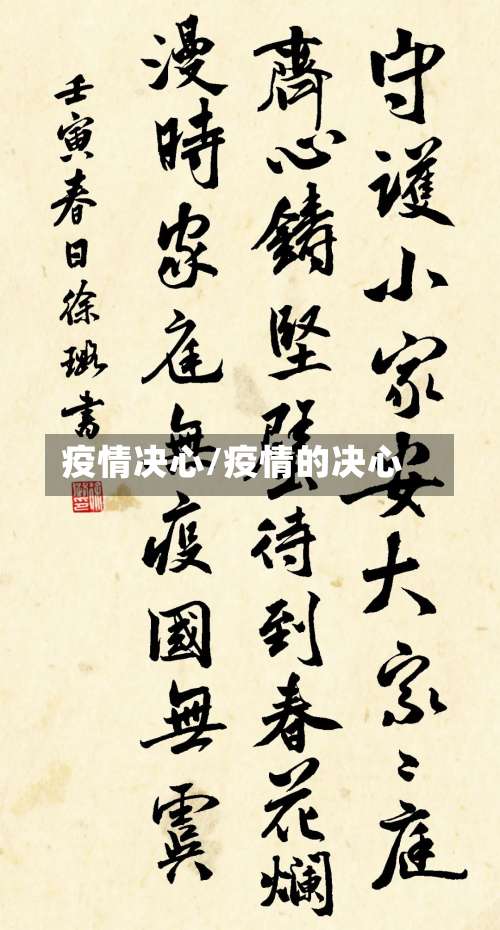 守護小家安大家〻庭
齊心鑄堅强待到春花爛
漫時家庭無疫國無虞
壬寅春日徐璐書
疫情决心/疫情的决心